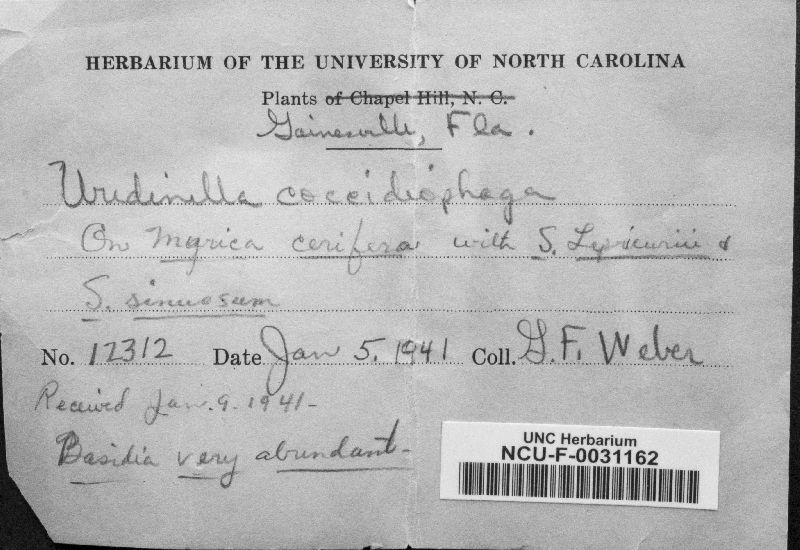 HERBARIUM OF THE UNIVERSITY OF NORTH CAROLINA
Plants of Chapel Hill, N. C.
Gainesville, Fla.
Uredinella coccidiophaga
On Myrica cerifera with S. &
S. sinuosum
No. 12312 Date Jan 5. 1941 Coll. G. F. Weber
Received Jan. 9. 1941-
Basidia very abundant-
UNC Herbarium
NCU-F-0031162